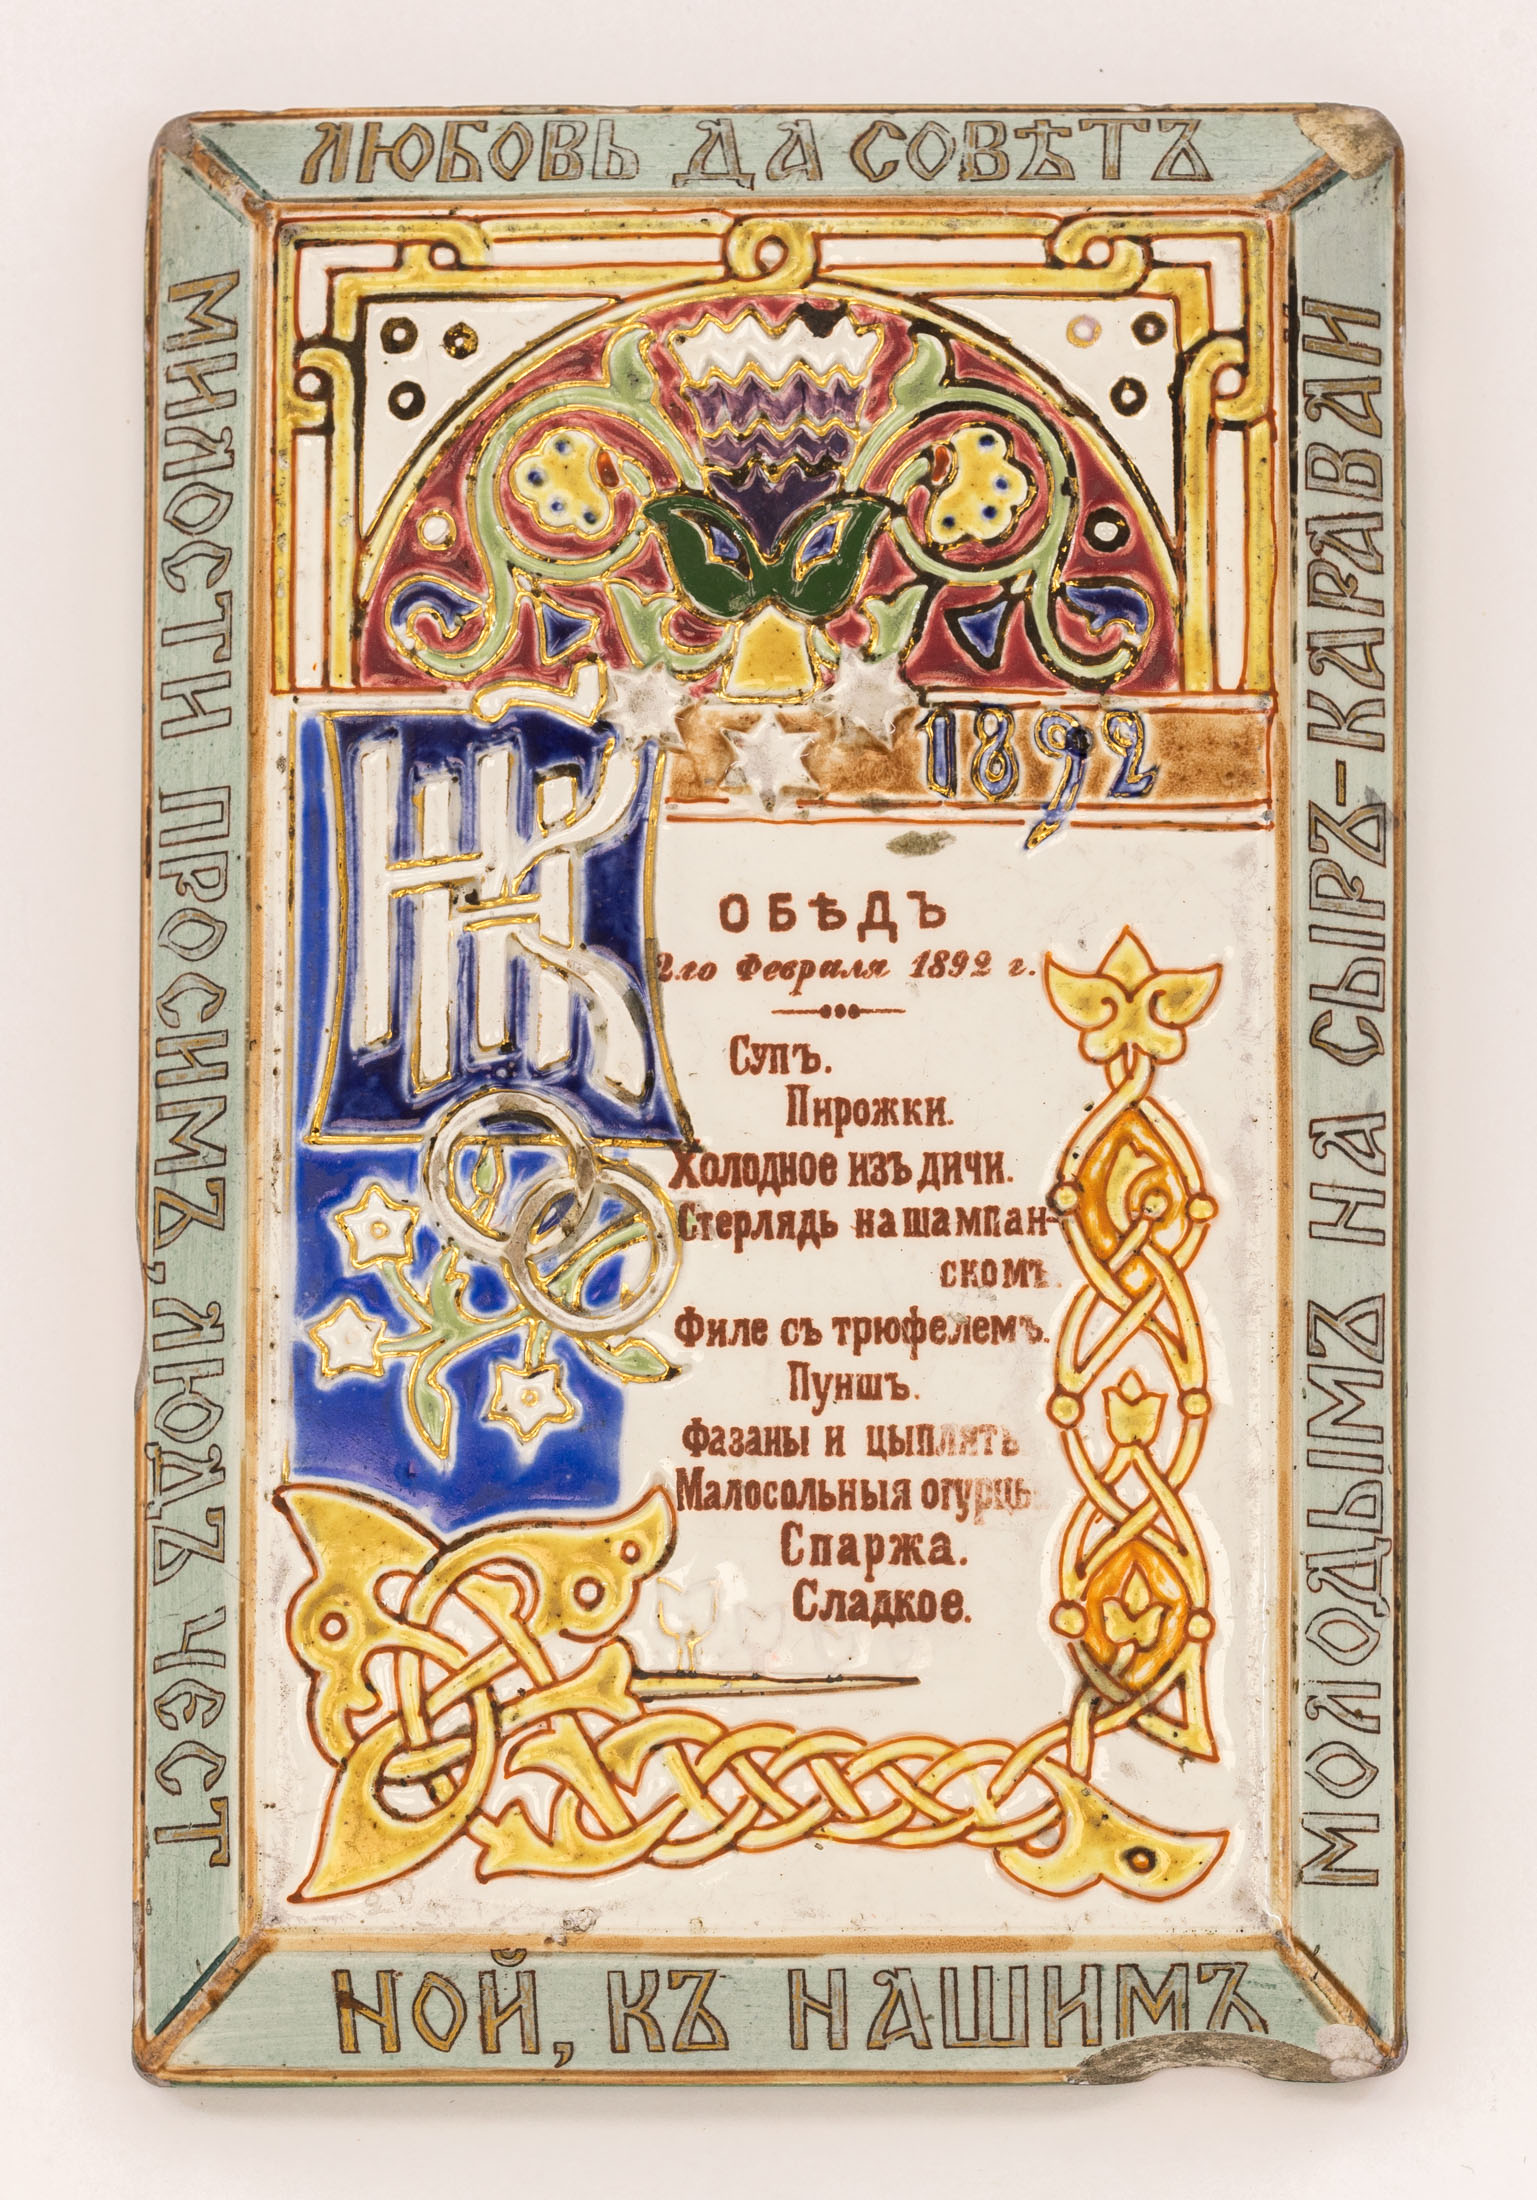 ЛЮБОВЬ ДА СОВѢТЪ
МИЛОСТИ ПРОСИМЪ, ЛЮДЪ ЧЕСТ
НОЙ, КЪ НАШИМЪ
МОЛОДЫМЪ НА СЫРЪ-КАРАВАИ
1892
ОБѢДЪ
2го Февраля 1892 г.
Супъ.
Пирожки.
Холодное изъ дичи.
Стерлядь на шампан-
скомъ.
Филе съ трюфелемъ.
Пуншъ.
Фазаны и цыплята
Малосольныя огурцы
Спаржа.
Сладкое.